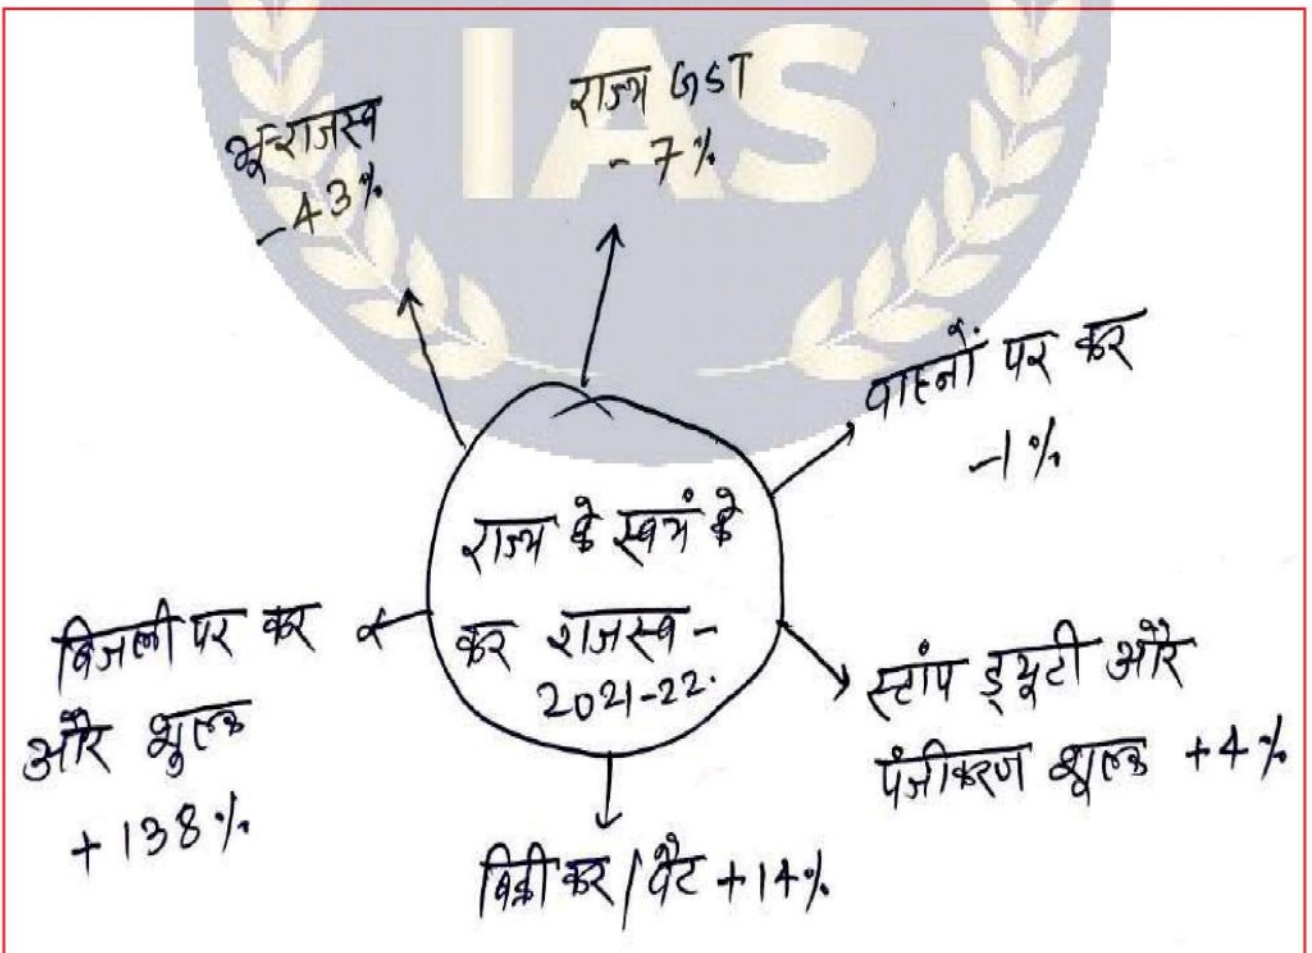 IAS
भू-राजस्व
-43%
राज्य GST
- 7%
वाहनों पर कर
-1%
राज्य के स्वयं के
कर राजस्व -
2021-22.
बिजली पर कर
और शुल्क
+ 138%
स्टांप ड्यूटी और
पंजीकरण शुल्क +4%
बिक्री कर / वैट +14%